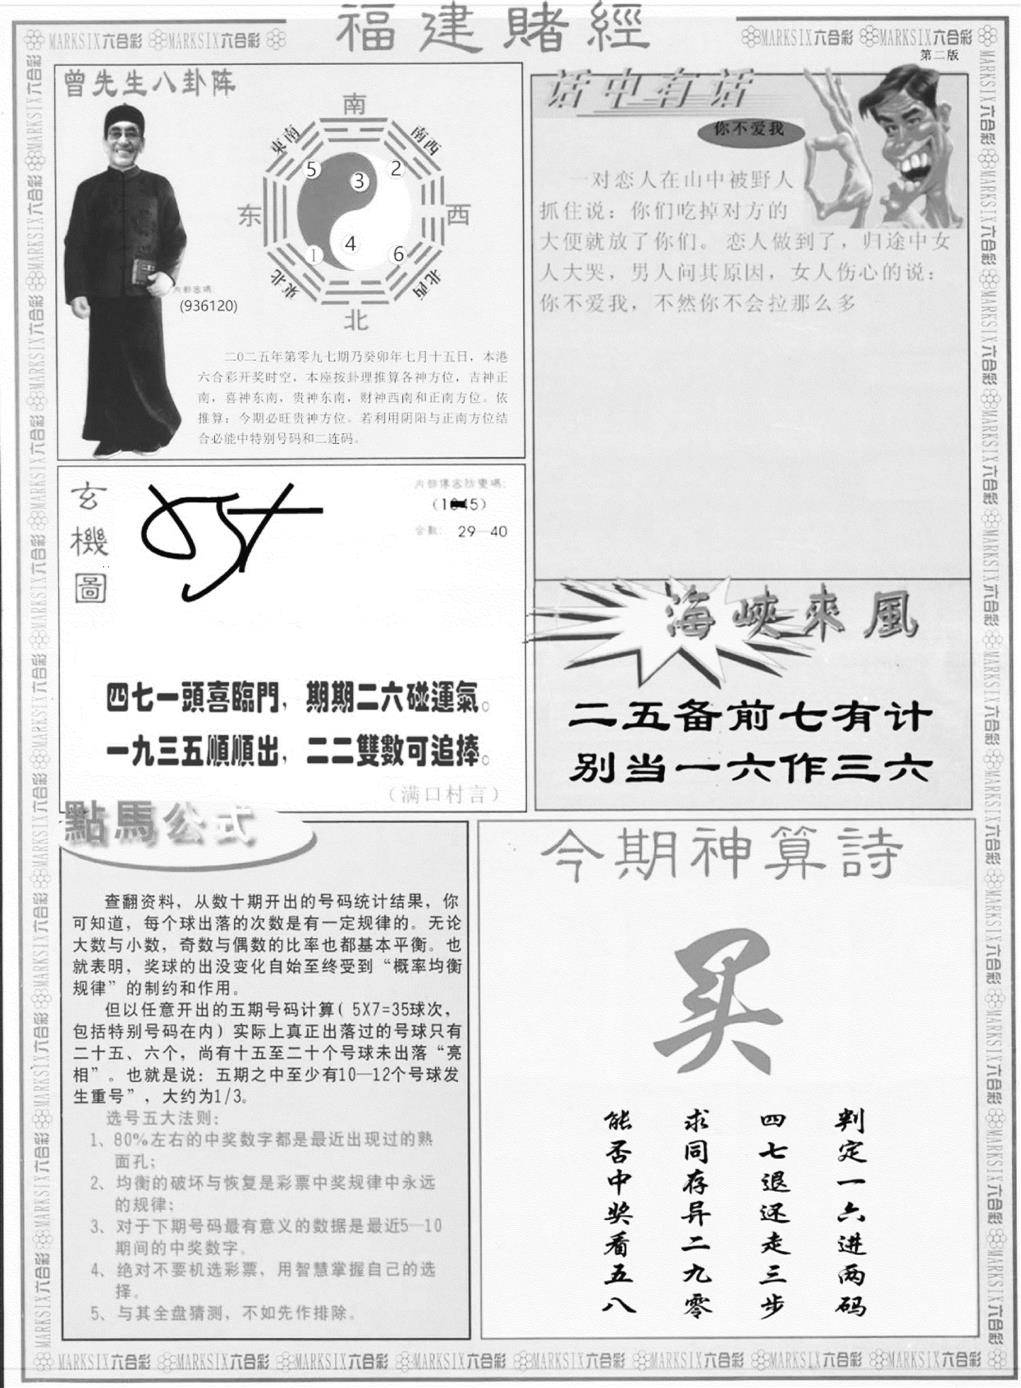 福建賭經
MARKSIX六合彩 MARKSIX六合彩
MARKSIX六合彩 MARKSIX六合彩
第二版
曾先生八卦阵
南
東南
南西
5
2
3
东
西
4
1
6
東北
北西
北
内部密碼
(936120)
二0二五年第零九七期乃癸卯年七月十五日，本港
六合彩开奖时空，本座按卦理推算各神方位，吉神正
南，喜神东南，贵神东南，财神西南和正南方位。依
推算：今期必旺贵神方位。若利用阴阳与正南方位结
合必能中特别号码和二连码。
话中有话
你不爱我
一对恋人在山中被野人
抓住说：你们吃掉对方的
大便就放了你们。 恋人做到了，归途中女
人大哭，男人问其原因，女人伤心的说：
你不爱我，不然你不会拉那么多
玄機圖
29—40
四七一頭喜臨門，期期二六碰運氣。
一九三五順順出，二二雙數可追捧。
（满口村言）
海峽來風
二五备前七有计
别当一六作三六
點馬公式
查翻资料，从数十期开出的号码统计结果，你
可知道，每个球出落的次数是有一定规律的。无论
大数与小数，奇数与偶数的比率也都基本平衡。也
就表明，奖球的出没变化自始至终受到“概率均衡
规律”的制约和作用。
但以任意开出的五期号码计算( 5X7=35球次，
包括特别号码在内）实际上真正出落过的号球只有
二十五、六个，尚有十五至二十个号球未出落“亮
相”。也就是说：五期之中至少有10—12个号球发
生重号”，大约为1/3。
选号五大法则：
1、80%左右的中奖数字都是最近出现过的熟
面孔；
2、均衡的破坏与恢复是彩票中奖规律中永远
的规律；
3、对于下期号码最有意义的数据是最近5—10
期间的中奖数字。
4、绝对不要机选彩票，用智慧掌握自己的选
择。
5、与其全盘猜测，不如先作排除。
今期神算詩
买
判定一六进两码
四七退还走三步
求同存异二九零
能否中奖看五八
MARKSIX六合彩 MARKSIX六合彩 MARKSIX六合彩 MARKSIX六合彩 MARKSIX六合彩 MARKSIX六合彩 MARKSIX六合彩 MARKSIX六合彩